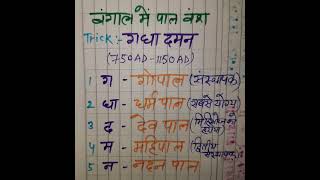 बंगाल में पाल वंश
Trick:- गधा दमन
(750AD-1150AD)
1 ग - गोपाल (संस्थापक)
2 धा - धर्मपाल (सबसे योग्य)
3 द - देवपाल
4 म - महिपाल (द्वितीय संस्थापक)
5 न - नदन पाल